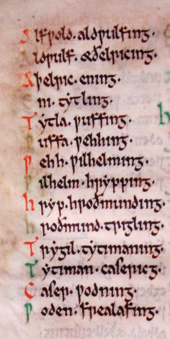 Ælfƿold · aldƿulfing ·
aldƿulf · æðelricing ·
Æþelric · ening ·
ni · tytling ·
Tytla · ƿuffing ·
ƿuffa · ƿehhing ·
Ƿehh · ƿilhelming ·
Ƿilhelm · hrypping ·
hryp · hroðmunding ·
hroðmund · trigling ·
Trygil · tyttmaning
Tyttman · casericg ·
Caser · ƿodning ·
Ƿoden · frealafing ·